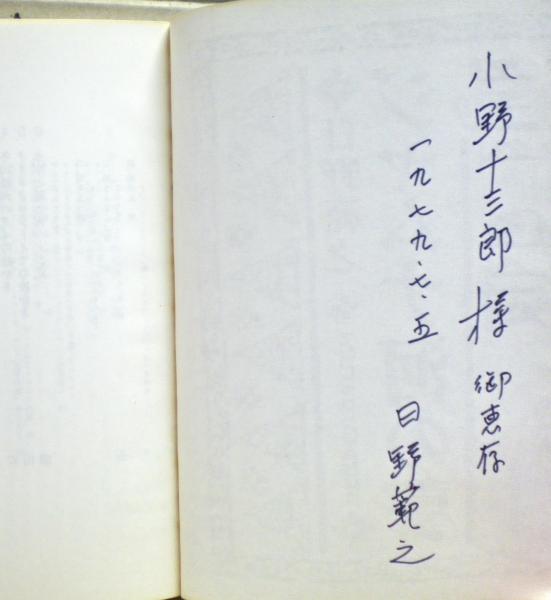 小野十三郎様 御恵存
一九七九・七・五
日野範之